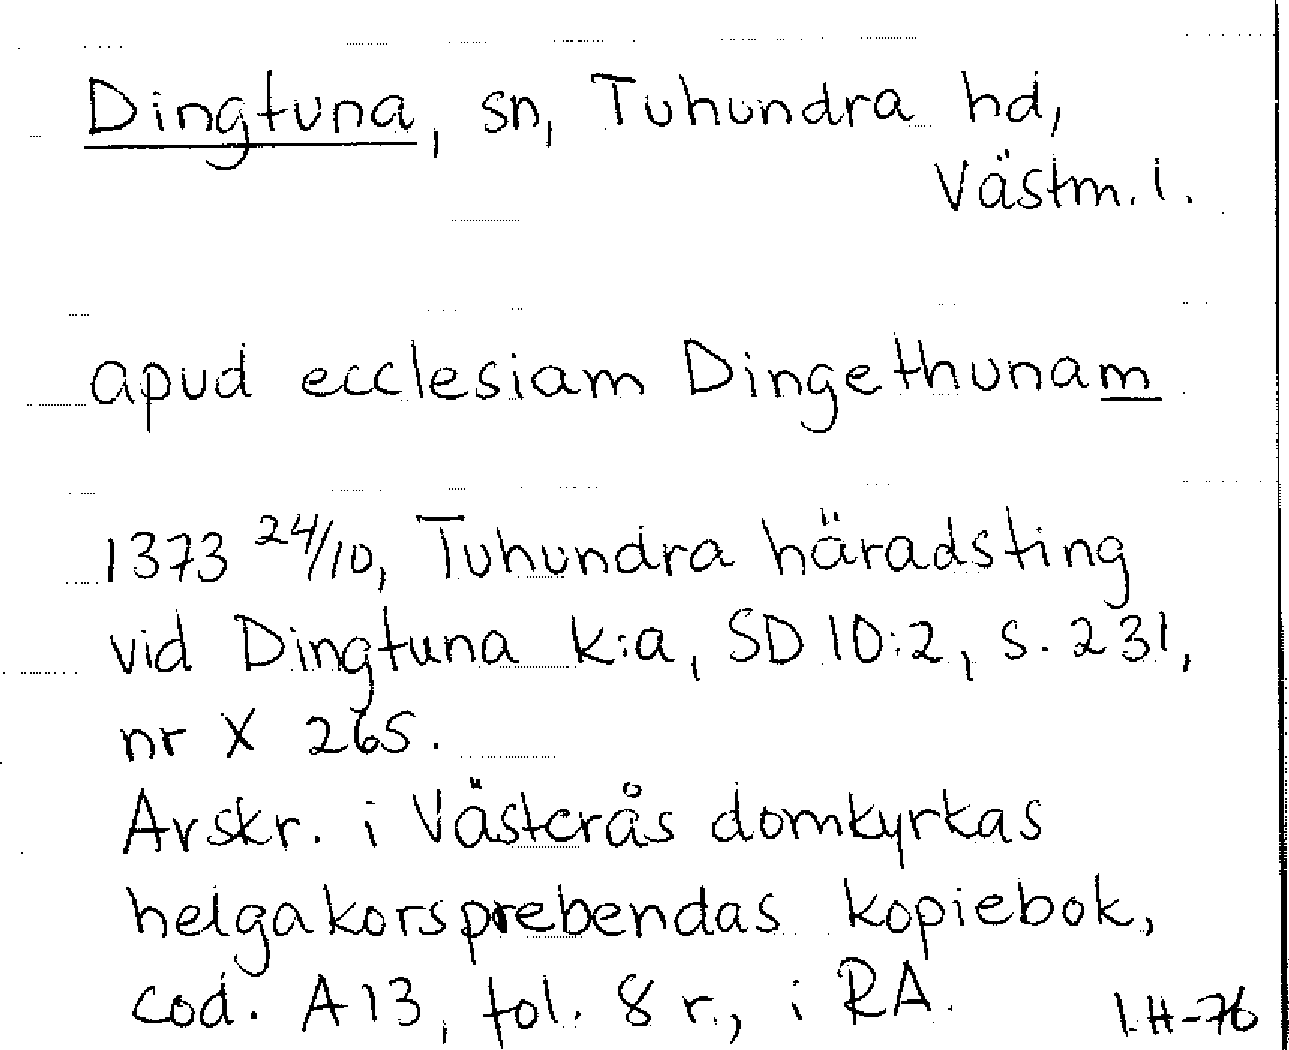 Dingtuna, sn, Tuhundra hd,
Västm. l.
apud ecclesiam Dingethunam
1373 24/10, Tuhundra häradsting
vid Dingtuna k:a, SD 10:2, s. 231,
nr X 265.
Avskr. i Västerås domkyrkas
helgakorsprebendas kopiebok,
cod. A 13, fol. 8 r., i RA.
I.H-76